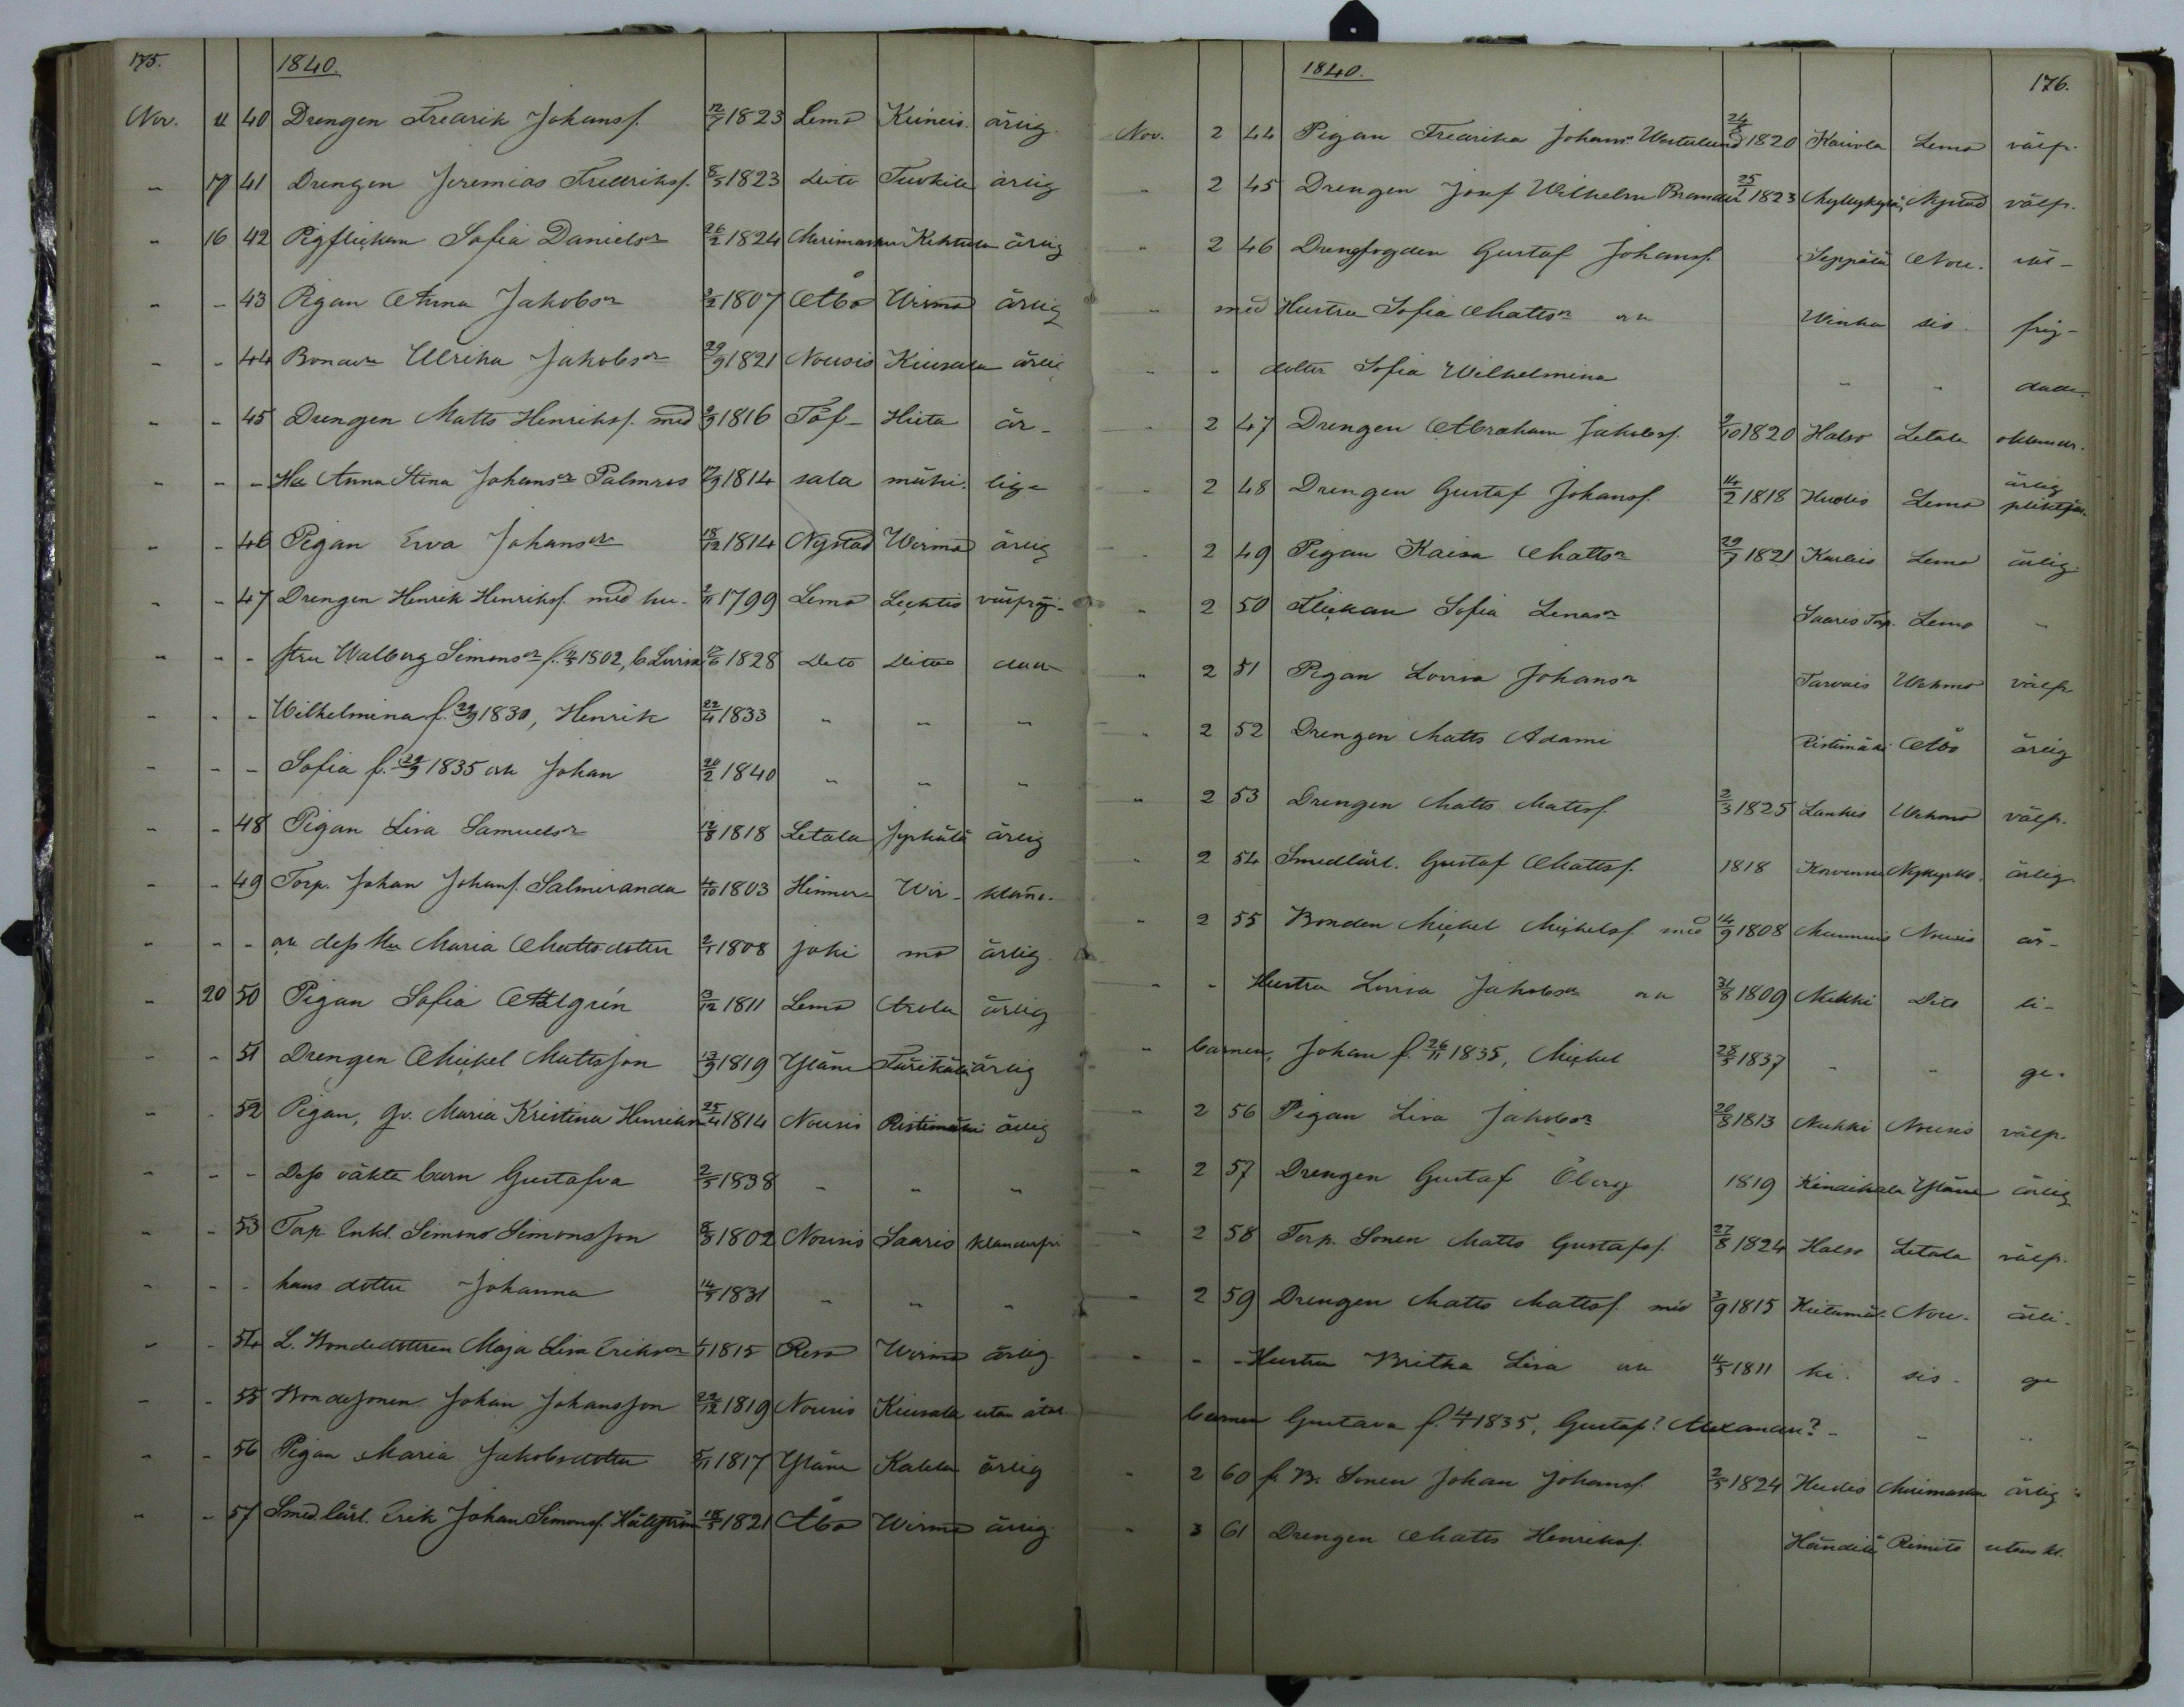 175.
1840.
Nov. 11 40 Drengen Fredrik Johansf. 12/7 1823 Lemo Kuineis. ärlig.
" 17 41 Drengen Jeremias Fredriksf. 8/5 1823 Dito Tuokila ärlig
" 16 42 Pigflickan Sofia Danielsr 26/2 1824 Merimasku ärlig
" - 43 Pigan Anna Jakobsr 1807 Åbo Wirmo ärlig
" - 44 Ulrika Jakobsr 29/9 1821 Nousis Kiusala ärlig
" - 45 Drengen Matts Henriksf. med 1816 Töf- Hieta är-
" - - Hu Anna Stina Johansr Palmros 17/9 1814 sala mäki. lig-
" - 46 Pigan Eva Johansr 18/12 1814 Nystad Wirmo ärlig
" - 47 Drengen Henrik Henriksf. med hu- 2/11 1799 Lemo Lechtis välfräg-
" - - stru Walborg Simonsr f. 1802, b. Lovisa 1828 Dito Ditto dad
" - - Wilhelmina f. 29/9 1830, Henrik 22/4 1833 " " "
" - - Sofia f. 29/9 1835 och Johan 20/2 1840 " " "
" - 48 Pigan Lisa Samuelsr 12/8 1818 Letala ärlig
" - 49 Torp. Johan Johansf. Salmiranda 4/10 1803 Hinner- Wir- klanr.
" - - och dess Hu Maria Mattsdotter 2/1 1808 joki mo ärlig.
" 20 50 Pigan Sofia Ahlgrén 3/12 1811 Lemo Arola ärlig
" - 51 Drengen Michel Mattsson 13/9 1819 Yläne ärlig
" - 52 Pigan, Qv. Maria Kristina Henriksr 25/4 1814 Nousis Ristimäki ärlig
" - - Dess oäkta barn Gustafva 2/5 1838 " " "
" - 53 Torp. Enkl. Simon Simonsson 8/8 1802 Nousis Saaris klanderfri
" - - hans dotter Johanna 14/5 1831 " " "
" - 54 L. Bondedottren Maja Lisa Eriksr 1815 Reso Wirmo ärlig.
" - 55 Bondesonen Johan Johansson 29/12 1819 Nousis Kiusala utan åtal
" - 56 Pigan Maria Jakobsdotter 5/11 1817 Yläne Kalela ärlig
" - 57 Smed. lärl. Erik Johan Simonsf. Hällström 18/5 1821 Åbo Wirmo ärlig.
1840.
176.
Nov. 2 44 Pigan Fredrika Johansr Westerlund 24/8 1820 Kaivola Lemo välfr.
" 2 45 Drengen Josef Wilhelm Brander 25/1 1823 Myllykylä, Nystad välfr.
" 2 46 Drengfogden Gustaf Johansf. Seppälä Nou- väl-
" med Hustru Sofia Mattsr och Winka sis. frej-
" " dotter Sofia Wilhelmina " " dade.
" 2 47 Drengen Abraham Jakobsf. 9/10 1820 Halso Letala oklander.
" 2 48 Drengen Gustaf Johansf. 14/2 1818 Hudis Lemo ärlig
" 2 49 Pigan Kaisa Mattsr 29/7 1821 Karleis Lemo ärlig.
" 2 50 Flickan Sofia Lenasr Saaris Torp. Lemo "
" 2 51 Pigan Lovisa Johansr Tarvais Wehmo välfr
" 2 52 Drengen Matts Adami Ristimäki Åbo ärlig
" 2 53 Drengen Matts Matsf. 2/3 1825 Lankis Wehmo välfr.
" 2 54 Smedlärl. Gustaf Mattsf. 1818 Nykyrko. ärlig
" 2 55 Bonden Michel Michelsf. med 14/9 1808 Nousis är-
" " Hustru Lovisa Jakobsr och 31/8 1809 Nukki Dito li-
" barnen, Johan f. 26/11 1835, Michel 28/5 1837 " " ge.
" 2 56 Pigan Lisa Jakobsr 20/8 1813 Nukki Nousis välfr.
" 2 57 Drengen Gustaf Öberg 1819 Yläne ärlig
" 2 58 Torp. Sonen Matts Gustafsf. 27/8 1824 Halso Letala välfr.
" 2 59 Drengen Matts Mattsf. med 3/9 1815 Hietamä- Nou- ärli-
" " - Hustru Britha Lisa och 4/5 1811 ki. sis- ge
barnen Gustava f. 4/7 1835, Gustaf? Alexander? - " "
" 2 60 f. B. Sonen Johan Johansf. 2/5 1824 Hudis Merimasku ärlig
" 3 61 Drengen Matts Henriksf. Händilä Rimito utan kl.